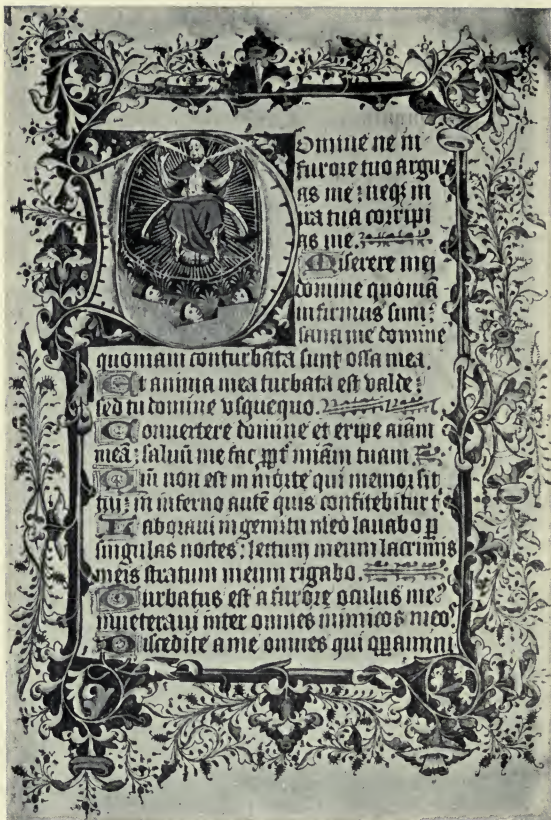 Domine ne in
furore tuo argu
as me: neqȝ in
ira tua corripi
as me.
Miserere mei
domine quoniā
infirmus sum:
sana me domine
quoniam conturbata sunt ossa mea.
Et anima mea turbata est valde:
sed tu domine vsquequo.
Conuertere domine et eripe aīam
meā: saluū me fac ꝓpt̄ mīam tuam
Qm̄ non est in morte qui memor sit
tui: in inferno autē quis confitebitur t̄
Laboraui in gemitu meo lauabo ꝑ
singulas noctes: lectum meum lacrimis
meis stratum meum rigabo.
Turbatus est a furore oculus meꝰ
inueteraui inter omnes inimicos meos
Discedite a me omnes qui opāmini